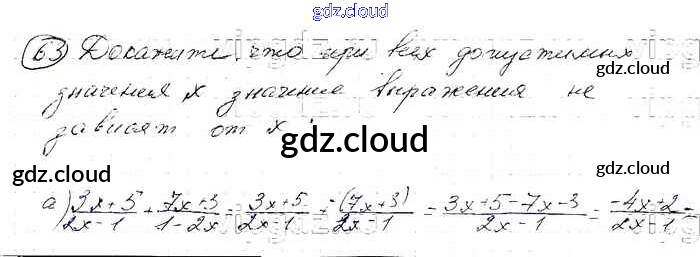 gdz.cloud
63 Докажите, что при всех допустимых
gdz.cloud
значения x значение выражения не
зависят от x.
gdz.cloud
gdz.cloud
gdz.cloud
а) (3x+5)/(2x-1) + (7x+3)/(1-2x) = (3x+5)/(2x-1) + (-(7x+3))/(2x-1) = (3x+5-7x-3)/(2x-1) = (-4x+2)/(2x-1) =
gdz.cloud